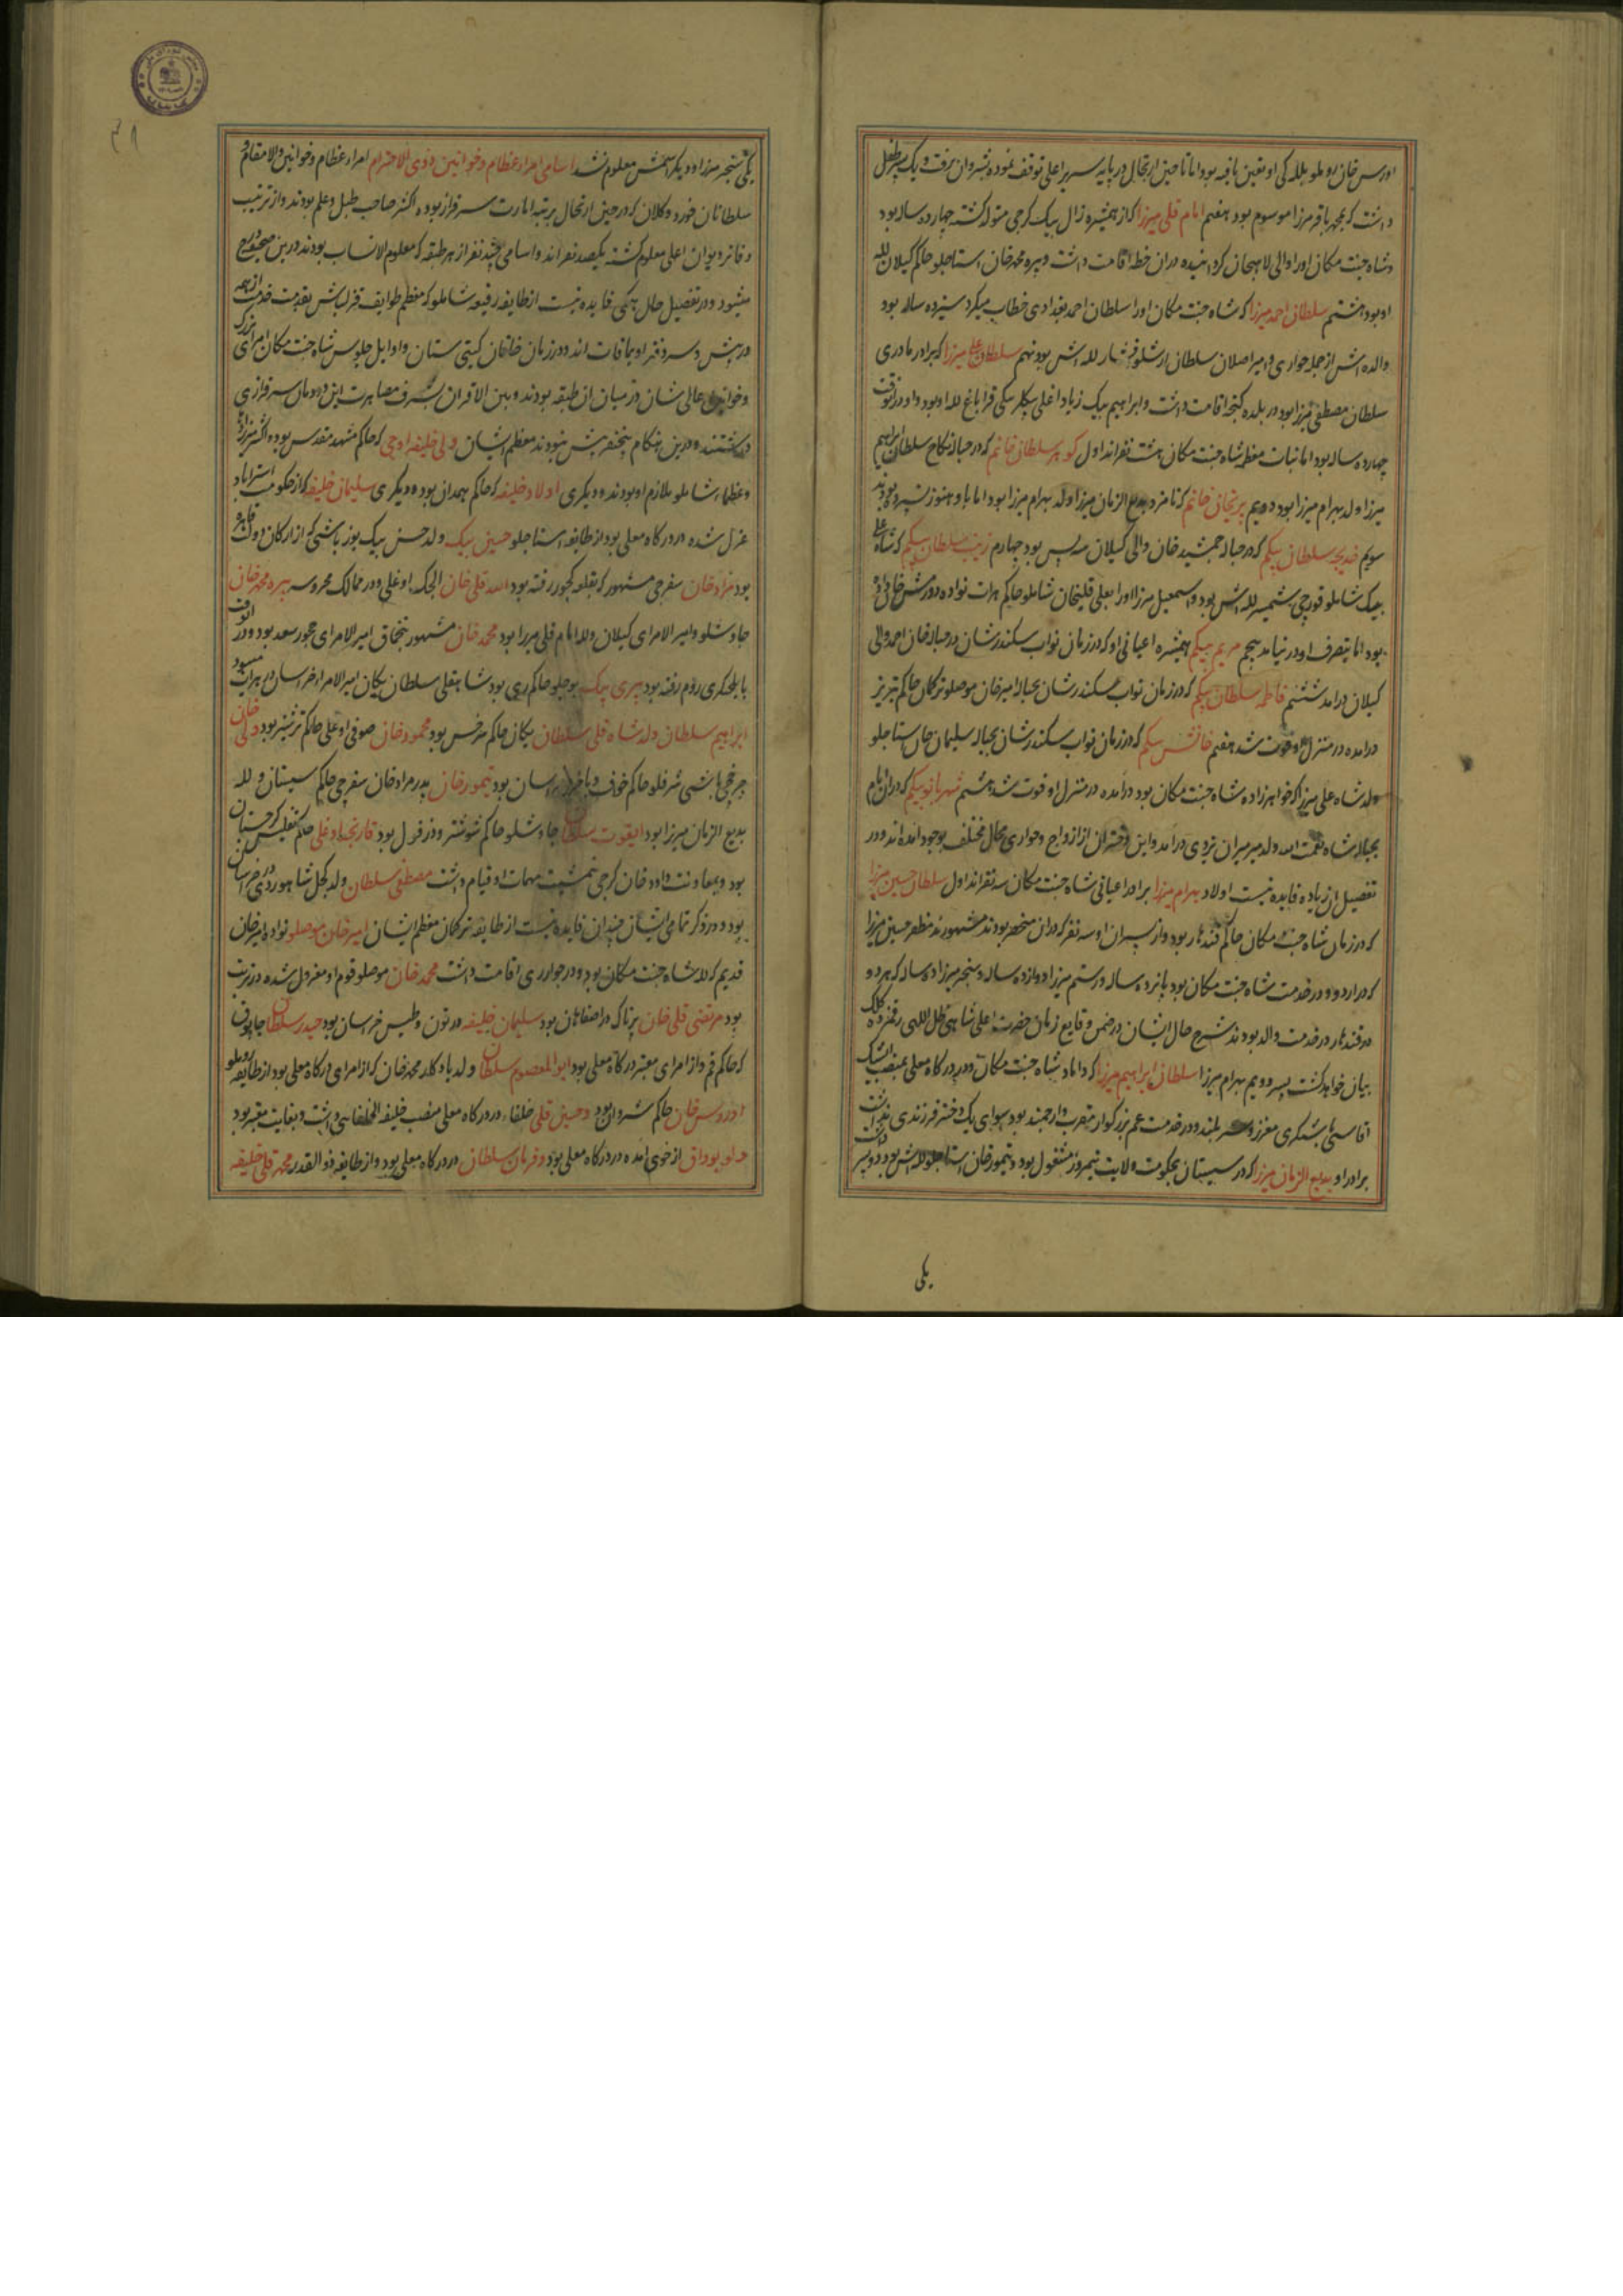 اورس خان روملو بلله کی او تعین یافته بود اما تا حین ارتحال در پایه سریر اعلی توقف نموده بشروان نرفت و یک پسر طفل
داشت که بمحمد باقر میرزا موسوم بود هفتم امام قلی میرزا که از همشیره زال بیک کرجی متولد کشته چهارده ساله بود
و شاه جنت مکان او را والی لاهیجان کردانیده در ان خطه اقامت داشت و پیره محمد خان استاجلو حاکم کیلان لله
او بود هشتم سلطان احمد میرزا که شاه جنت مکان او را سلطان احمد بغدادی خطاب میکرد سیزده ساله بود
والده اش از جمله جواری و امیر اصلان سلطان ارشلو افشار لله اش بود نهم سلطان علی میرزا که برادر مادری
سلطان مصطفی میرزا بود در بلده کنجه اقامت داشت و ابراهیم بیک زیاد اغلی بیکلربیکی قراباغ لله او بود و او در انوقت
چهارده ساله بود اما بنات معظمه شاه جنت مکان هشت نفراند اول کوهر سلطان خانم که در حباله نکاح سلطان ابراهیم
میرزا ولد بهرام میرزا بود دویم پریخان خانم که نامزد بدیع الزمان میرزا ولد بهرام میرزا بود اما با او هنوز نسپرده بودند
سویم خدیجه سلطان بیکم که در حباله جمشید خان والی کیلان بیه پس بود چهارم زینب سلطان بیکم که شاه علی
بیک شاملو قورچی شمشیر لله اش بود و اسمعیل میرزا او را بعلی قلیخان شاملو حاکم هرات نواده دورمش خان داده
بود اما بتصرف او در نیامد پنجم مریم بیکم همشیره اعیانی او که در زمان نواب سکندرشان در حباله خان احمد والی
کیلان درامد ششم فاطمه سلطان بیکم که در زمان نواب سکندرشان بحباله امیر خان موصلو ترکمان حاکم تبریز
درامده در منزل او فوت شد هفتم خانش بیکم که در زمان نواب سکندرشان بحباله سلیمان خان استاجلو
ولد شاه علی میرزا که خواهرزاده شاه جنت مکان بود درآمده در منزل او فوت شد هشتم شهربانو بیکم که در ان ایام
بحباله شاه نعمت الله ولد میر میران یزدی درامد و این دختران از ازواج و جواری محال مختلف بوجود امده اند و در
تفصیل ان زیاده فایده نیست اولاد بهرام میرزا برادر اعیانی شاه جنت مکان سه نفراند اول سلطان حسین میرزا
که در زمان شاه جنت مکان حاکم قندهار بود و از پسران او سه نفر که در ان منحصر بودند مشهورند مظفر حسین میرزا
که در اردو و در خدمت شاه جنت مکان بود پانزده ساله و رستم میرزا دوازده ساله و سنجر میرزا ده ساله که هر دو
در قندهار در خدمت والد بودند شرح حال ایشان در ضمن وقایع زمان حضرت اعلی شاهی ظل اللهی رقمزده کلک
بیان خواهد کشت پسر دویم بهرام میرزا سلطان ابراهیم میرزا که داماد شاه جنت مکان و در درکاه معلی بمنصب ایشک
اقاسی باشیکری معزز و سربلند و در خدمت عم بزرکوار مقرب و ارجمند بود سوای یک دختر فرزندی نداشت
برادر او بدیع الزمان میرزا که در سیستان بحکومت ولایت نیمروز مشغول بود و تیمور خان استاجلو لله اش بود دو پسر داشت
یکی
یکی سنجر میرزا و دیکر اسمش معلوم نشد اسامی امراء عظام و خوانین ذوی الاحترام امراء عظام و خوانین والا مقام و
سلطانان خورد و کلان که در حین ارتحال برتبه امارت سرفراز بوده اکثر صاحب طبل و علم بودند و از ترتیب
دفاتر دیوان اعلی معلوم کشت یکصد نفراند و اسامی چند نفر از هر طبقه که معلوم الانساب بودند درین صحیفه درج
میشود و در تفصیل حال همکی فایده نیست از طایفه رفیعه شاملو که معظم طوایف قزلباش بقدمت خدمت از همه
در پیش و سر دفتر اویماقات اند در زمان خاقان کیتی ستان و اوایل جلوس شاه جنت مکان امرای بزرک
و خوانین عالی شان در میان ان طبقه بودند و بین الاقران بشرف مصاهرت این دودمان سرفرازی
داشتند و درین هنکام پنج نفر بیش نبودند معظم ایشان ولی خلیفه اوجی که حاکم مشهد مقدس بود و اکثر میرزاده
و عظماء شاملو ملازم او بودند و دیکری اولاد خلیفه که حاکم همدان بود و دیکری سلیمان خلیفه که از حکومت استراباد
عزل شده در درکاه معلی بود از طایفه استاجلو حسین بیک ولد حسن بیک یوزباشی که از ارکان دولت قاهره
بود مراد خان سفره‌چی مشهور که بقلعه کجور رفته بود الله قلی خان ایجک اوغلی و در ممالک محروسه پیره محمد خان
جاوشلو و امیر الامرای کیلان و لله امام قلی میرزا بود محمد خان مشهور بتخماق امیر الامرای چخور سعد بود و در انوقت
بایلچیکری روم رفته بود پیری بیک قوجلو حاکم ری بود شاهقلی سلطان یکان امیر الامراء خراسان دار السلطنه هرات بود
ابراهیم سلطان ولد شاه قلی سلطان یکان حاکم سرخس بود محمود خان صوفی اوغلی حاکم ترشیز بود ولی خان
چرخچی باشی شرفلو حاکم خواف و باخرز خراسان بود تیمور خان پدر مراد خان سفره‌چی حاکم سیستان و لله
بدیع الزمان میرزا بود ایقوت سلطان جاوشلو حاکم شوشتر و دزفول بود قارنجه اوغلی حاکم تفلیس کرجستان
بود و بمعاونت داود خان کرجی بتمشیت مهمات او قیام داشت مصطفی سلطان ولد کچل شاهوردی در خراسان
بود و در ذکر تمامی ایشان چندان فایده نیست از طایفه ترکمان معظم ایشان امیر خان موصلو نواده امیر خان
قدیم که لله شاه جنت مکان بود و در جوار ری اقامت داشت محمد خان موصلو قوم او معزول شده در تربت
بود مرتضی قلی خان پرناک در اصفاهان بود سلیمان خلیفه در تون و طبس خراسان بود حیدر سلطان چابوق
که حاکم قم و از امرای معتبر درکاه معلی بود ابو المعصوم سلطان ولد بادکار محمد خان که از امرای درکاه معلی بود از طایفه روملو
ادروس خان حاکم شروان بود و حسین قلی خلفاء در درکاه معلی منصب خلیفه الخلفایی داشت و بغایت معتبر بود
دلو بوداق از خوی امده در درکاه معلی بود و قربان سلطان در درکاه معلی بود و از طایفه ذوالقدر محمد قلی خلیفه